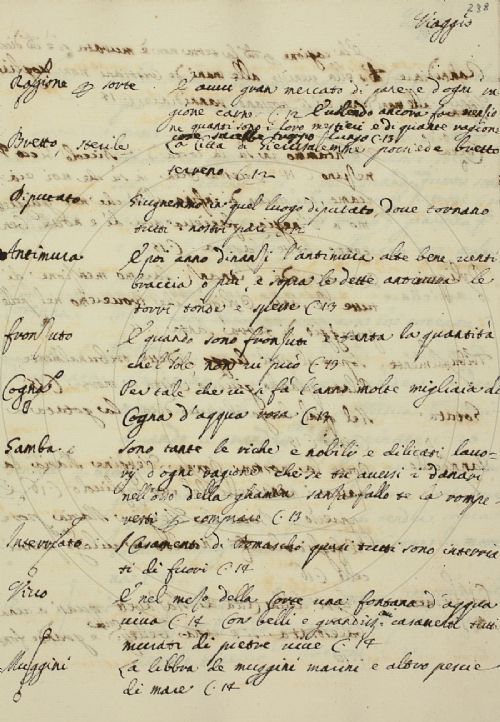 238
Viaggio
Ragione p sorte È avvi gran mercato di pane e d'ogni in
gione carne C. 12 E volendo ancora far menzio
ne quanti sono i loro mestieri e di quante ragioni
Bretto sterile La Città di Gierusalemme possiede bretto
terreno C. 12
Diputato Giugnemmo in quel luogo diputato, dove tornano
tutti i nostri pari
Antimura E poi anno dinanzi l'antimura alte bene venti
braccia o più, e sopra le dette antimura le
torri tonde e spesse C. 13
fronzuto E quando sono fronzuti è tanta la quantità
che'l sole non vi può C. 13
Cogna Per tale che vi si fà l'anno molte migliaia di
Cogna d'acqua rosa C. 13
Gamba sono tante le riche e nobili e dilicati lavo-
rii d'ogni ragione che se tu avessi i danari
nell'osso della gamba sanza fallo te la rompe
resti p comprare C. 13
Interriato I Casamenti di Domascho quasi tutti sono interria
ti di fuori C. 14
Vivo E nel mezo della Corte una fontana d'acqua
viva C. 14 Con belli e grandissimi casamenti tutti
murati di pietre vive C. 14
Muggini La libbra de muggini marini e altro pescie
di mare C. 14